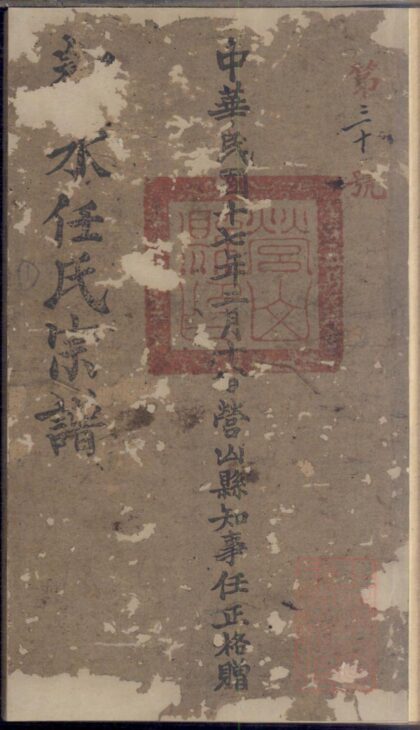 第三十號
中華民國十七年三月 日營山縣知事任正格贈
水任氏宗譜